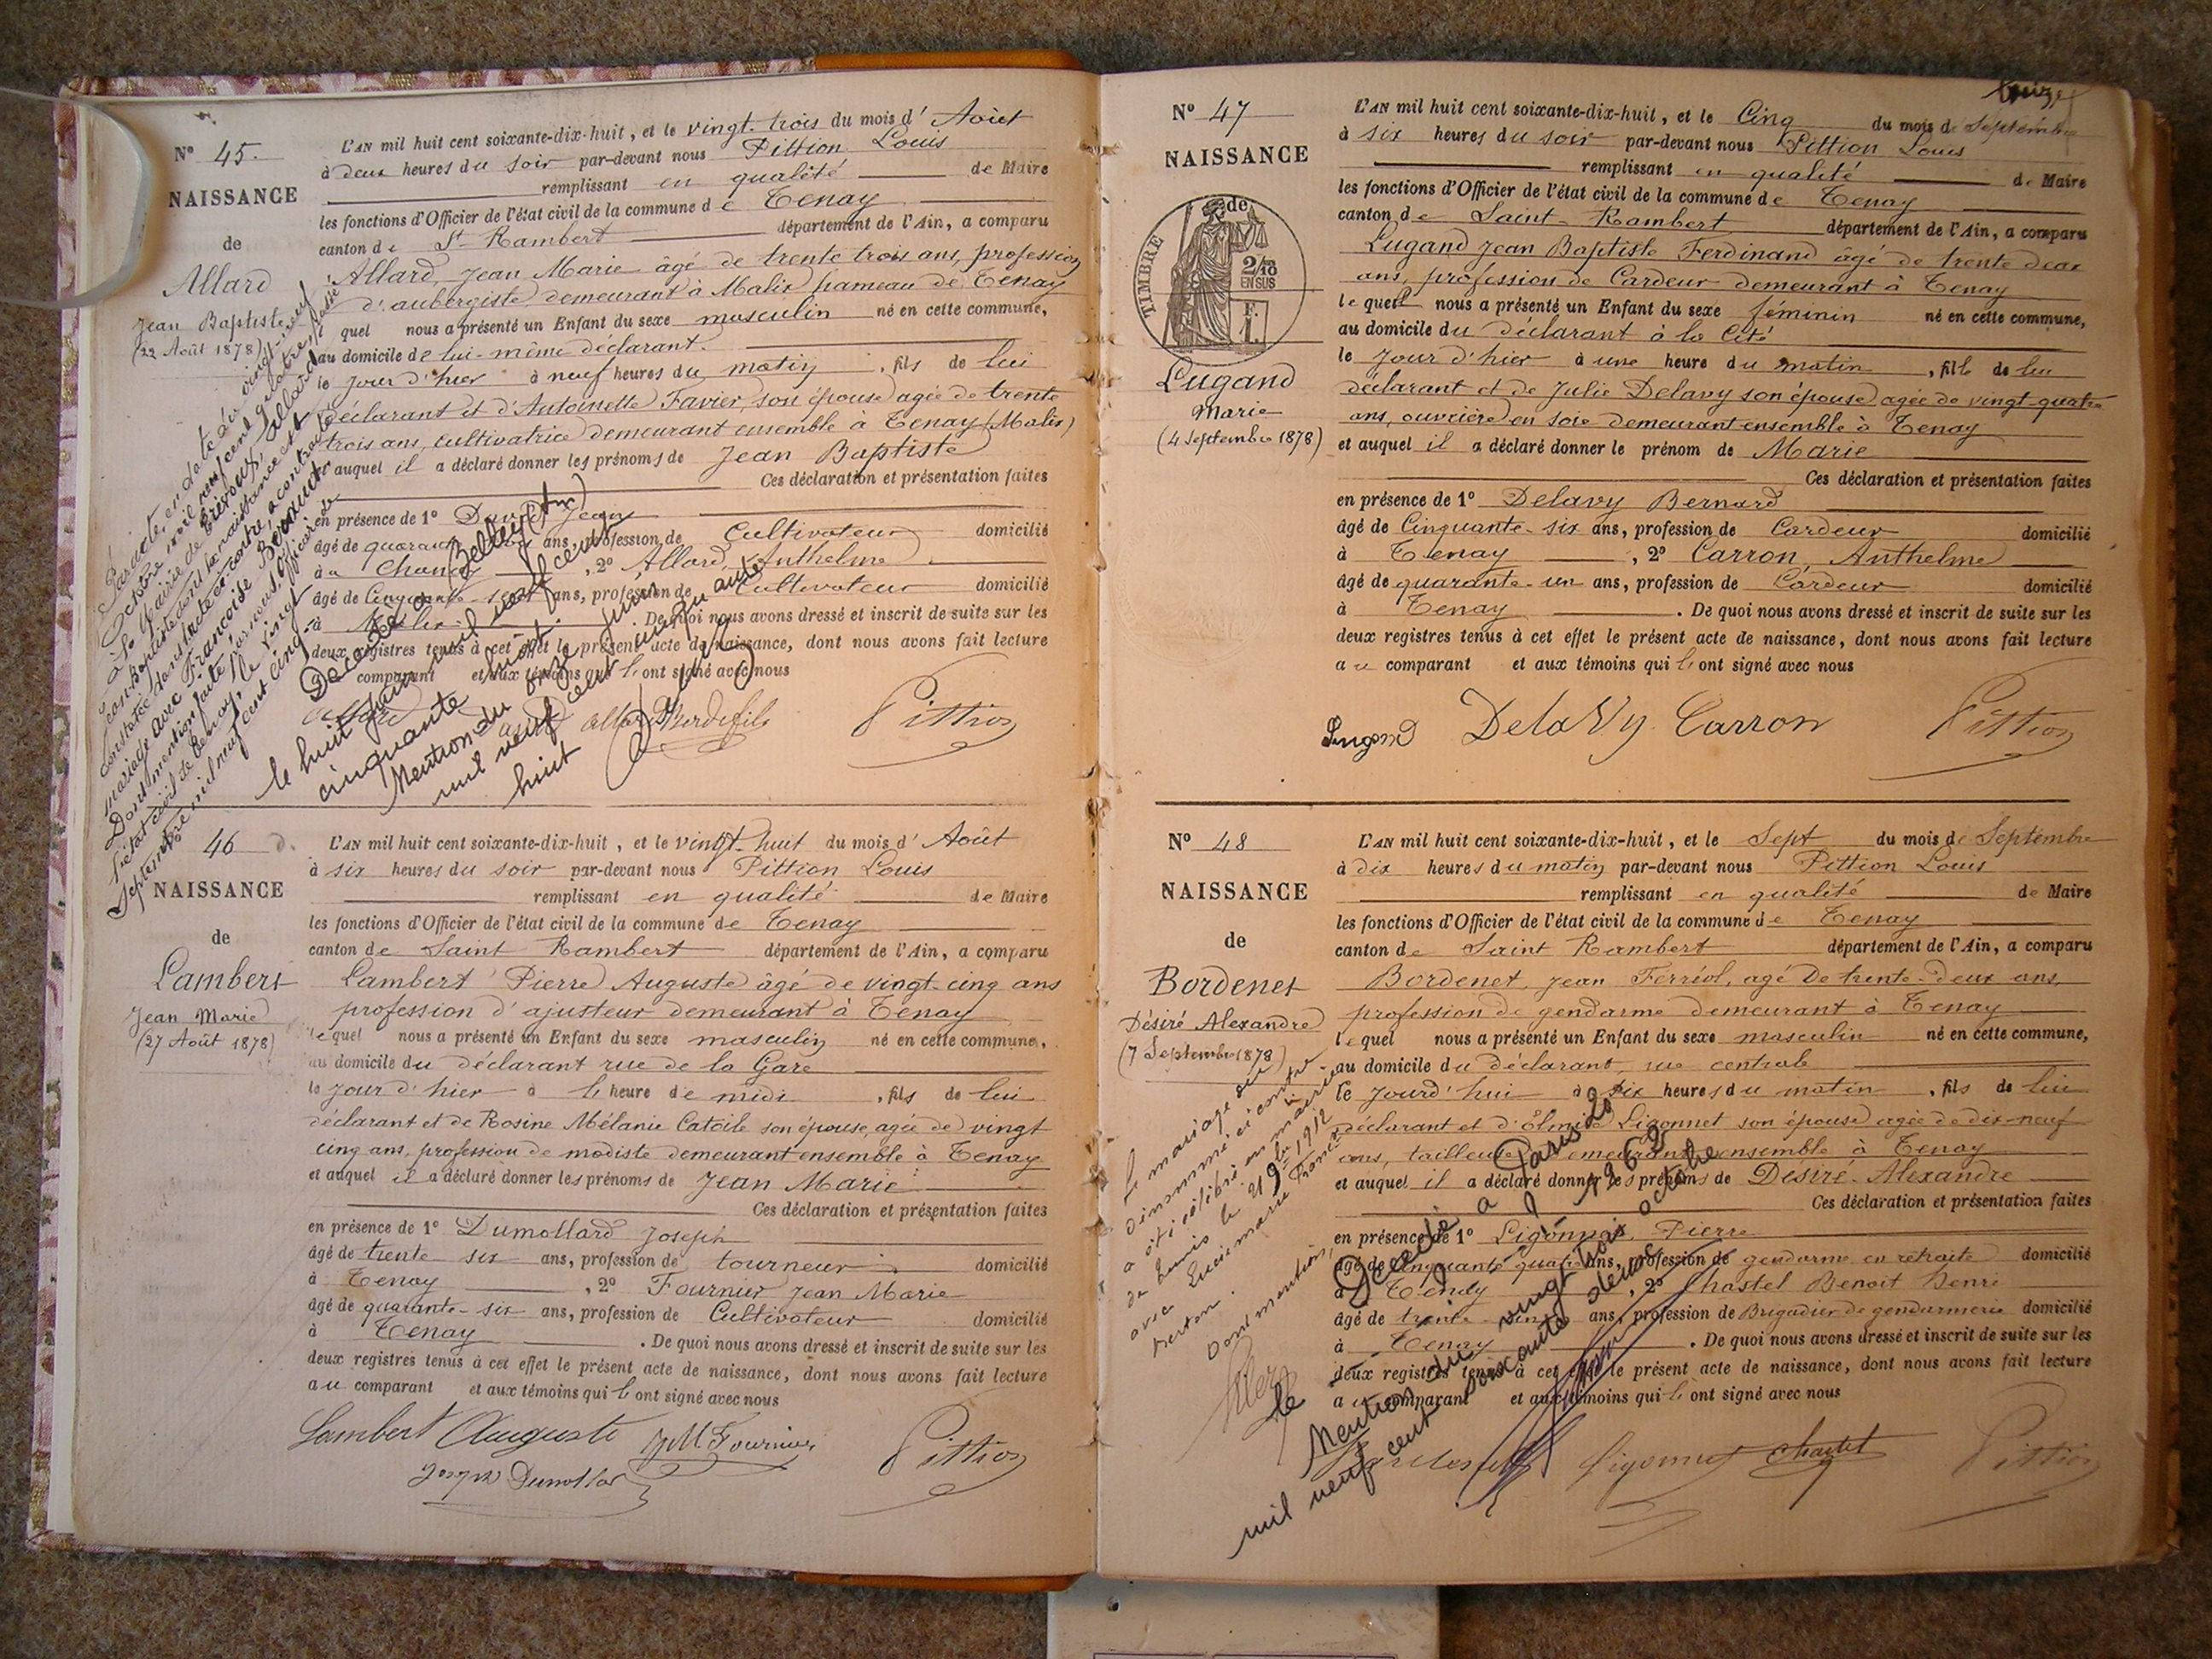 N° 45.
NAISSANCE
de
Allard
Jean Baptiste
(22 Août 1878)
L'AN mil huit cent soixante-dix-huit, et le vingt-trois du mois d'Août
à deux heures du soir par-devant nous Pittion Louis
remplissant en qualité de Maire
les fonctions d'Officier de l'état civil de la commune de Tenay
canton de St Rambert département de l'Ain, a comparu
Allard Jean Marie âgé de trente trois ans, profession
d'aubergiste demeurant à Malix hameau de Tenay
lequel nous a présenté un Enfant du sexe masculin né en cette commune,
au domicile de lui-même déclarant.
le jour d'hier à neuf heures du matin, fils de lui
déclarant et d'Antoinette Favier, son épouse agée de trente
trois ans, cultivatrice demeurant ensemble à Tenay (Malix)
et auquel il a déclaré donner les prénoms de Jean Baptiste
Ces déclaration et présentation faites
en présence de 1° Jean
âgé de ans, profession de Cultivateur domicilié
à, 2° Allard, Anthelme
âgé de Cinquante-sept ans, profession de Cultivateur domicilié
à Malix. De quoi nous avons dressé et inscrit de suite sur les
deux registres tenus à cet effet le présent acte de naissance, dont nous avons fait lecture
au comparant et aux témoins qui l'ont signé avec nous
Pittion
Par acte en date du vingt-neuf
Octobre mil neuf cent quatre, passé
à la Mairie de Trévoux, Allard
Jean Baptiste dont la naissance est
constatée dans l'acte ci-contre, a contracté
mariage avec Françoise
Dont mention faite par nous, officier de
l'état civil de Tenay, le vingt
Septembre mil neuf cent cinq.
Décédé à Belley (Ain)
le huit juin mil neuf cent
cinquante huit.
Mention du onze juin
mil neuf cent cinquante
huit
46
NAISSANCE
de
Lambert
Jean Marie
(27 Août 1878)
L'AN mil huit cent soixante-dix-huit, et le vingt-huit du mois d'Août
à six heures du soir par-devant nous Pittion Louis
remplissant en qualité de Maire
les fonctions d'Officier de l'état civil de la commune de Tenay
canton de Saint Rambert département de l'Ain, a comparu
Lambert Pierre Auguste âgé de vingt-cinq ans
profession d'ajusteur demeurant à Tenay
lequel nous a présenté un Enfant du sexe masculin né en cette commune,
au domicile du déclarant rue de la Gare
le jour d'hier à l'heure de midi, fils de lui
déclarant et de Rosine Mélanie Catoile son épouse, agée de vingt
cinq ans, profession de modiste demeurant ensemble à Tenay
et auquel il a déclaré donner les prénoms de Jean Marie
Ces déclaration et présentation faites
en présence de 1° Dumollard Joseph
âgé de trente six ans, profession de tourneur domicilié
à Tenay, 2° Fournier Jean Marie
âgé de quarante-six ans, profession de Cultivateur domicilié
à Tenay. De quoi nous avons dressé et inscrit de suite sur les
deux registres tenus à cet effet le présent acte de naissance, dont nous avons fait lecture
au comparant et aux témoins qui l'ont signé avec nous
Lambert Auguste JM Fournier Pittion
Joseph Dumollar
N° 47
NAISSANCE
de
TIMBRE
2/10
EN SUS
F.
1.
Lugand
Marie
(4 Septembre 1878)
L'AN mil huit cent soixante-dix-huit, et le Cinq du mois de Septembre
à six heures du soir par-devant nous Pittion Louis
remplissant en qualité de Maire
les fonctions d'Officier de l'état civil de la commune de Tenay
canton de Saint-Rambert département de l'Ain, a comparu
Lugand Jean Baptiste Ferdinand âgé de trente deux
ans, profession de Cardeur demeurant à Tenay
lequel nous a présenté un Enfant du sexe féminin né en cette commune,
au domicile du déclarant à la Cité
le jour d'hier à une heure du matin, fille de lui
déclarant et de Julie Delavy son épouse agée de vingt-quatre
ans, ouvrière en soie demeurant ensemble à Tenay
et auquel il a déclaré donner le prénom de Marie
Ces déclaration et présentation faites
en présence de 1° Delavy Bernard
âgé de Cinquante-six ans, profession de Cardeur domicilié
à Tenay, 2° Carron, Anthelme
âgé de quarante-un ans, profession de Cardeur domicilié
à Tenay. De quoi nous avons dressé et inscrit de suite sur les
deux registres tenus à cet effet le présent acte de naissance, dont nous avons fait lecture
au comparant et aux témoins qui l'ont signé avec nous
Lugand DelaVy Carron Pittion
N° 48
NAISSANCE
de
Bordenet
Désiré Alexandre
(7 Septembre 1878)
L'AN mil huit cent soixante-dix-huit, et le Sept du mois de Septembre
à dix heures du matin par-devant nous Pittion Louis
remplissant en qualité de Maire
les fonctions d'Officier de l'état civil de la commune de Tenay
canton de Saint Rambert département de l'Ain, a comparu
Bordenet, Jean Ferréol, agé De trente-deux ans,
profession de gendarme demeurant à Tenay
lequel nous a présenté un Enfant du sexe masculin né en cette commune,
au domicile du déclarant, rue centrale
le jourd'hui à six heures du matin, fils de lui
déclarant et d' Ligonnet son épouse agée de dix-neuf
ans, tailleuse demeurant ensemble à Tenay
et auquel il a déclaré donner les prénoms de Désiré-Alexandre
Ces déclaration et présentation faites
en présence de 1° Ligonnet, Pierre
âgé de cinquante quatre ans, profession de gendarme en retraite domicilié
à Tenay, 2° Chastel Benoit Henri
âgé de trente ans, profession de Brigadier de gendarmerie domicilié
à Tenay. De quoi nous avons dressé et inscrit de suite sur les
deux registres tenus à cet effet le présent acte de naissance, dont nous avons fait lecture
au comparant et aux témoins qui l'ont signé avec nous
Ligonnet Chastel Pittion
Le mariage du
dénommé ci contre
a été célébré en mairie
de le 1912
avec Lucie Marie
Dont mention,
Décédé à Paris 20
le 1962
Mention du vingt trois octobre
mil neuf cent soixante deux